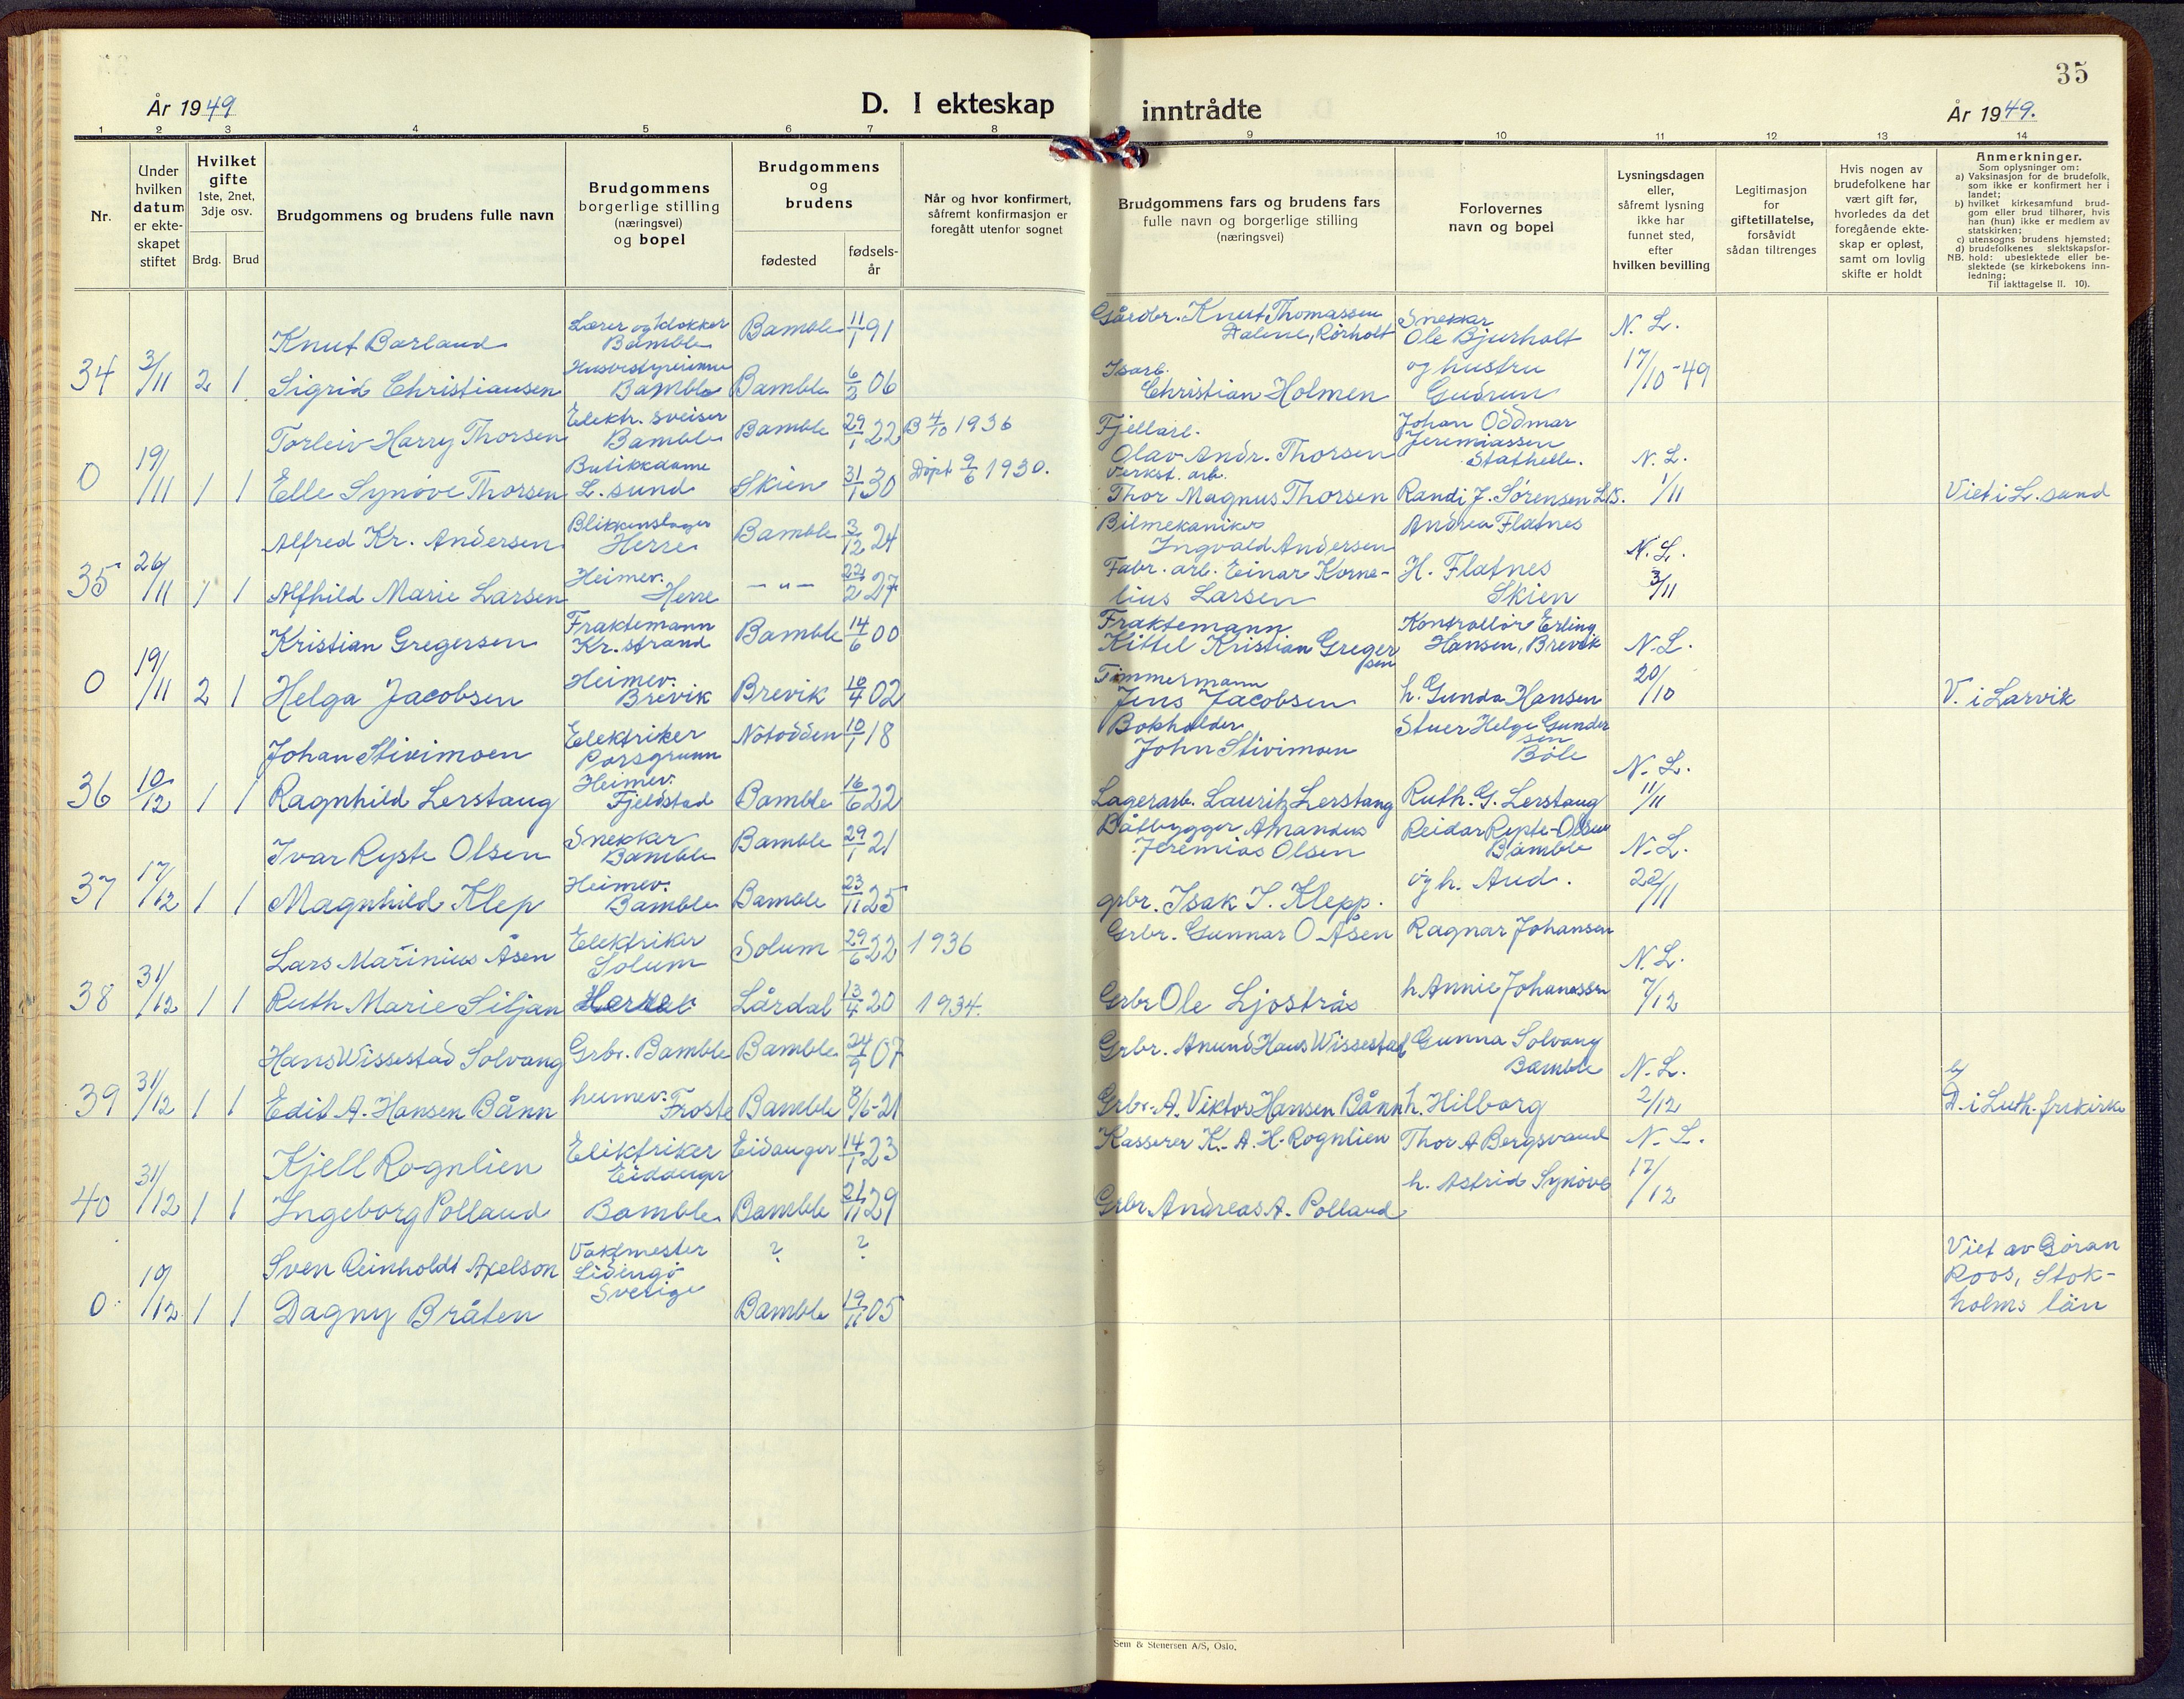 35
År 1949
D. I ekteskap inntrådte
År 1949.
1 2 3 4 5 6 7 8 9 10 11 12 13 14
Nr.
Under hvilken datum er ekte-skapet stiftet
Hvilket gifte
1ste, 2net, 3dje osv.
Brdg. Brud
Brudgommens og brudens fulle navn
Brudgommens borgerlige stilling (næringsvei) og bopel
Brudgommens og brudens
fødested
fødsels-år
Når og hvor konfirmert, såfremt konfirmasjon er foregått utenfor sognet
Brudgommens fars og brudens fars fulle navn og borgerlige stilling (næringsvei)
Forlovernes navn og bopel
Lysningsdagen eller, såfremt lysning ikke har funnet sted, efter hvilken bevilling
Legitimasjon for giftetillatelse, forsåvidt sådan tiltrenges
Hvis nogen av brudefolkene har vært gift før, hvorledes da det foregående ekte-skap er opløst, samt om lovlig skifte er holdt
Anmerkninger.
Som oplysninger om:
a) Vaksinasjon for de brudefolk, som ikke er konfirmert her i landet;
b) hvilket kirkesamfund brud-gom eller brud tilhører, hvis han (hun) ikke er medlem av statskirken;
c) utensogns brudens hjemsted;
d) brudefolkenes slektskapsfor-hold: ubeslektede eller be-slektede (se kirkebokens inn-ledning;
NB.
Til iakttagelse II. 10).
Knut Barland Lærer og klokker Bamble Bamble 11/1 91 Gårdbr. Knut Thomassen Dalene, Rørholt Snekker Ole Bjurholt N. L.
34 3/11 2 1 Sigrid Christiansen Husbestyrerinne Bamble Bamble 6/2 06 Isarb. Christian Holmen og hustru Gudrun 17/10-49
Torleiv Harry Thorsen Elektr. sveiser Bamble Bamble 29/1 22 B 4/10 1936 Fjellarb. Olav Andr. Thorsen Johan Oddmar Jeremiassen Stathelle. N. L.
0 19/11 1 1 Elle Synøve Thorsen Butikkdame L. sund Skien 31/1 30 Døpt 9/6 1930. Verkst. arb. Thor Magnus Thorsen Randi J. Sørensen L.S. 1/11 Viet i L. sund
Alfred Kr. Andersen Blikkenslager Herre Bamble 3/12 24 Bilmekaniker Ingvald Andersen Andrea Flatnes N. L.
35 26/11 1 1 Alfhild Marie Larsen Heimev. Herre — " — 22/2 27 Fabr. arb. Einar Korne-lius Larsen H. Flatnes Skien 3/11
Kristian Gregersen Fraktemann Kr. strand Bamble 14/6 00 Fraktemann Kittel Kristian Gregersen Kontrollør Erling Hansen, Brevik N. L.
0 19/11 2 1 Helga Jacobsen Heimev. Brevik Brevik 10/4 02 Tømmermann Jens Jacobsen h. Gunda Hansen 20/10 V. i Larvik
Johan Stivimoen Elektriker Porsgrunn Notodden 10/1 18 Bokholder John Stivimoen Stuer Helge Gundersen Bøle N. L.
36 10/12 1 1 Ragnhild Lerstang Heimev. Fjeldstad Bamble 16/6 22 Lagerarb. Lauritz Lerstang Ruth. G. Lerstang 11/11
Ivar Ryste Olsen Snekker Bamble Bamble 29/1 21 Båtbygger Amandus Jeremias Olsen Reidar Rypte-Olsen Bamble N. L.
37 17/12 1 1 Magnhild Klep Heimev. Bamble Bamble 23/11 25 grbr. Isak I. Klepp. og h. Aud. 22/11
Lars Marinius Åsen Elektriker Solum Solum 29/6 22 1936 Grbr. Gunnar O Åsen Ragnar Johansen N. L.
38 31/12 1 1 Ruth Marie Siljan Herre Lårdal 13/4 20 1934. Grbr Ole Ljostrås h Annie Johanessen 7/12
Hans Wissestad Solvang Grbr. Bamble Bamble 24/9 07 Grbr. Anund Hans Wissestad Gunna Solvang Bamble N. L.
39 31/12 1 1 Edit A. Hansen Bånn heimev. Froste Bamble 8/6-21 Grbr. A. Viktor Hansen Bånn h. Hilborg 2/12 b) D. i Luth. frikirke
Kjell Rognlien Elektriker Eidanger Eidanger 14/1 23 Kasserer K. A. H. Rognlien Thor A Bergsvand N. L.
40 31/12 1 1 Ingeborg Polland Bamble Bamble 21/11 29 Grbr. Andreas A. Polland h. Astrid Synøve 17/12
Sven Reinholdt Axelson Vaktmester Lidingö Sverige ? ?
0 10/12 1 1 Dagny Bråten Bamble 19/11 05 Viet av Göran Roos, Stok-holms län
Sem & Stenersen A/S, Oslo.